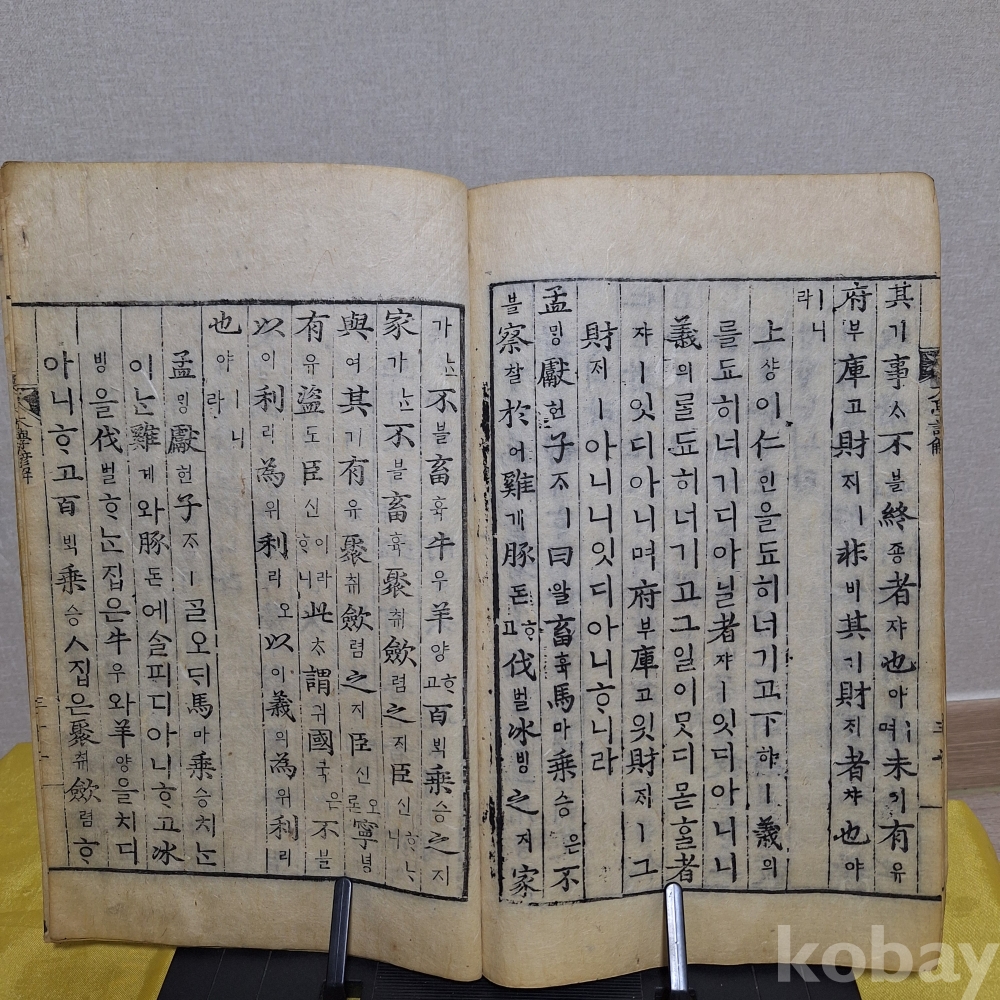 大學諺解
其기事ᄉᆞ不블終죵者쟈也야ㅣ며未미有유
府부庫고財ᄌᆡㅣ非비其기財ᄌᆡ者쟈也야
ㅣ니라
上샹이仁인을됴히너기고下하ㅣ義의
를됴히너기디아닐者쟈ㅣ잇디아니니
義의ᄅᆞᆯ됴히너기고그일이ᄆᆞᆺ디몯ᄒᆞᆯ者
쟈ㅣ잇디아니며府부庫고잇財ᄌᆡㅣ그
財ᄌᆡㅣ아니니잇디아니ᄒᆞ니라
孟ᄆᆡᆼ獻헌子ᄌᆞㅣ曰왈畜휵馬마乘승은不
블察찰於어雞계豚돈ᄒᆞ고伐벌冰빙之지家
가ᄂᆞᆫ不블畜휵牛우羊양ᄒᆞ고百ᄇᆡᆨ乘승之지
家가ᄂᆞᆫ不블畜휵聚취斂렴之지臣신ᄒᆞᄂᆞ니
與여其기有유聚취斂렴之지臣신오론寧녕
有유盜도臣신이라ᄒᆞ니此ᄎᆞ謂위國국은不블
以이利리為위利리오以이義의為위利리
也야ㅣ니라
孟ᄆᆡᆼ獻헌子ᄌᆞㅣᄀᆞᆯ오ᄃᆡ馬마乘승치ᄂᆞᆫ
이ᄂᆞᆫ雞계와豚돈에ᄉᆞᆯ피디아니ᄒᆞ고冰
빙을伐벌ᄒᆞᄂᆞᆫ집은牛우와羊양을치디
아니ᄒᆞ고百ᄇᆡᆨ乘승ㅅ집은聚취斂렴ᄒᆞ
大學諺解
kobay